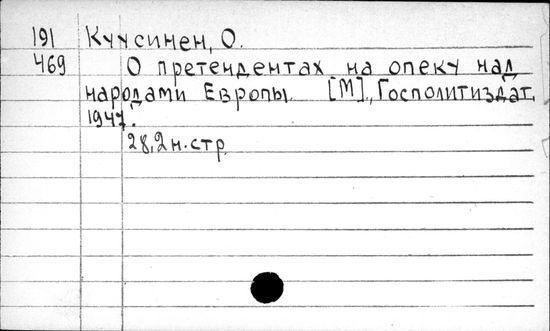 191 Куусинен, О.
469 О претендентах на опеку над
народами Европы. [М]., Госполитиздат,
1947.
28,2 н.стр.